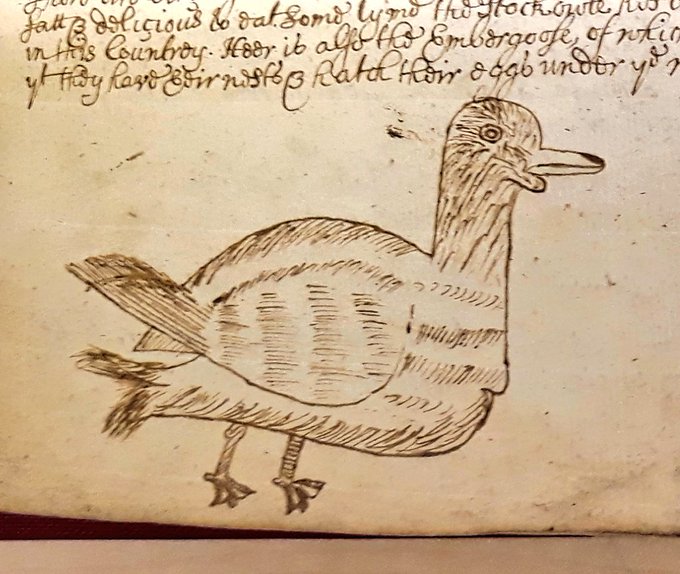 fatt & delicious to eat. Some tyme the Stockowle hes
in this Countrey. Heer is also the Embergoose, of which
yt they have their nests & hatch their eggs under ye